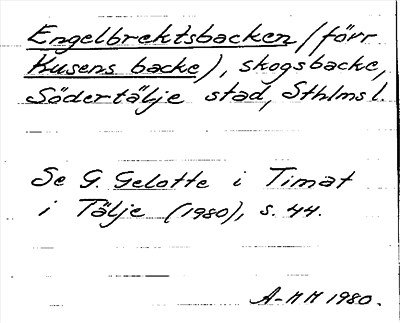 Engelbrektsbacken (förr
Kusens backe), skogsbacke,
Södertälje stad, Sthlms l.
Se G. Gelotte i Timat
i Tälje (1980), s. 44.
A-M H 1980.